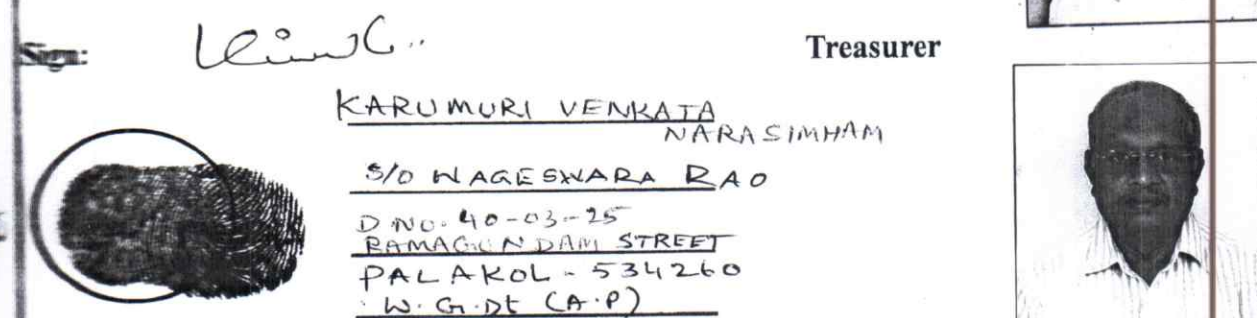 Sign:
Treasurer
KARUMURI VENKATA
NARASIMHAM
S/O NAGESWARA RAO
D NO. 40-03-25
RAMAGUNDAM STREET
PALAKOL - 534260
W.G.Dt (A.P)